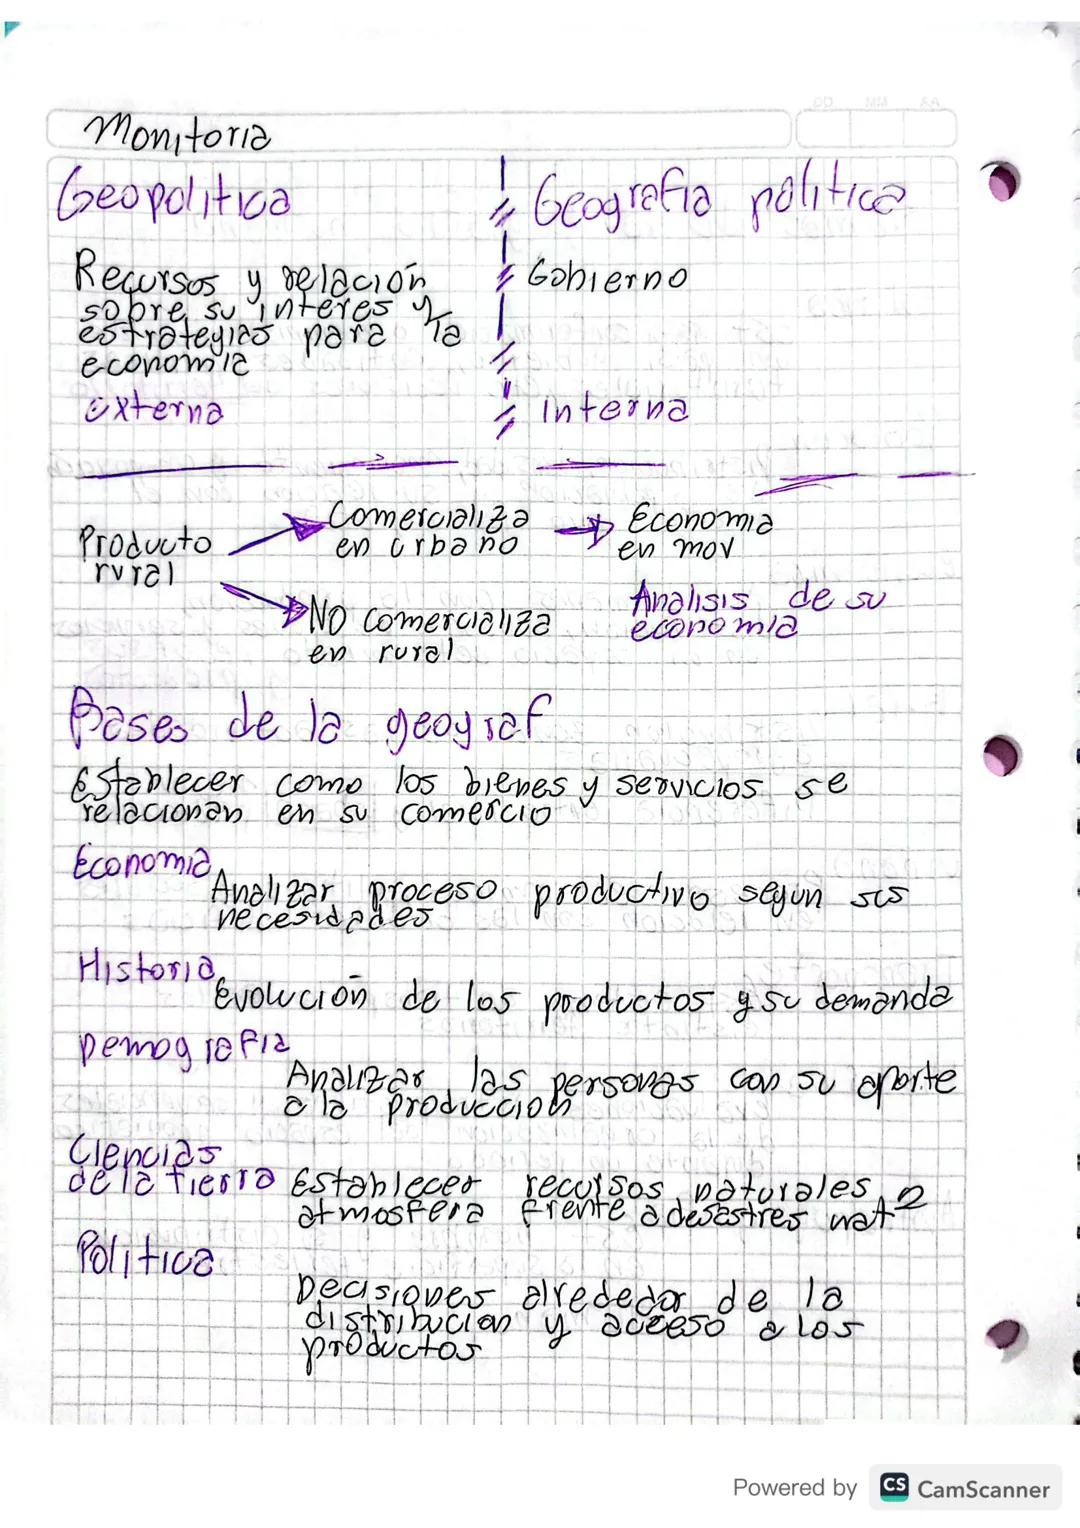 DD MM AA
Monitoria
Geopolitica
Geografia politica
Recursos y relación
sobre su interes y
estrategias para la
economia
Externa
Gobierno
Interna
Producto
rural
Comercializa
en urbano
Economia
en mov
No comercializa
en rural
Analisis de su
economia
Bases de la geograf
Establecer como los bienes y servicios se
relacionan en su comercio
Economia
Analizar proceso productivo segun sus
necesidades
Historia
Evolución de los productos y su demanda
Demografia
Analizar las personas con su aporte
a la produccion
Ciencias
de la tierra Establecer recursos naturales
atmosfera frente a desastres nat
Politica
Decisiones alrededor de la
distribucion y acceso a los
productos
Powered by CS CamScanner